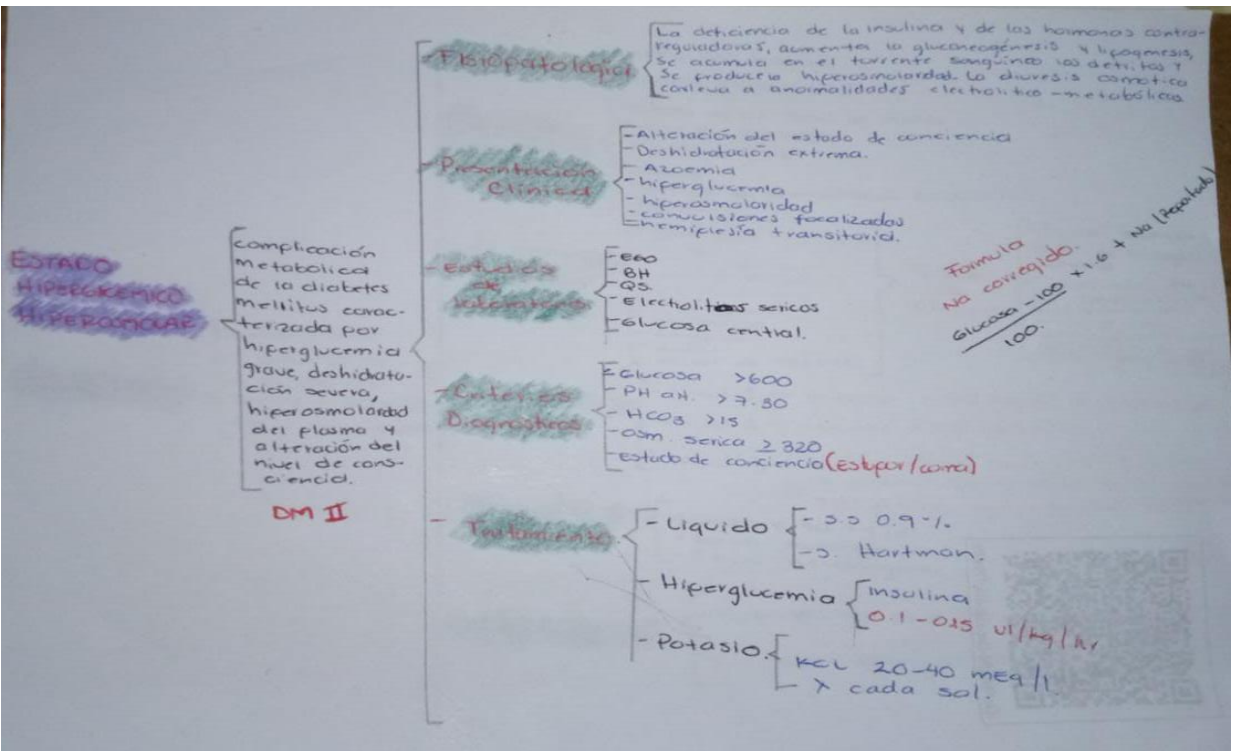 ESTADO
HIPERGLICEMICO
HIPEROSMOLAR
complicación
metabólica
de la diabetes
mellitus carac-
terizada por
hiperglucemia
grave, deshidrata-
ción severa,
hiperosmolaridad
del plasma y
alteración del
nivel de cons-
ciencia.
DM II
- Fisiopatologica
La deficiencia de la insulina y de las hormonas contra-
reguladoras, aumenta la gluconeogénesis y lipogenesis,
se acumula en el torrente sanguineo los detritos y
se produce hiperosmolaridad. La diuresis osmotica
conlleva a anormalidades electrolitico-metabólicas
- Presentación
Clínica
- Alteración del estado de conciencia
- Deshidratación extrema.
- Azoemia
- hiperglucemia
- hiperosmolaridad
- convulsiones focalizadas
- hemiplesia transitoria.
- Estudios
de
laboratorio
- EGO
- BH
- QS.
- Electrolitos sericos
- Glucosa central.
- Criterios
Diagnosticos
- Glucosa >600
- PH art. >7.30
- HCO3 >15
- osm. serica ≥320
- estado de conciencia (Estupor/coma)
- Tratamiento
- Liquido
- S.S 0.9%
- S. Hartman.
- Hiperglucemia
insulina
0.1-0.15 UI/kg/hr
- Potasio.
KCL 20-40 mEq/l.
x cada sol.
Formula
Na corregido.
Glucosa - 100 x 1.6 + Na (Reportado)
100.